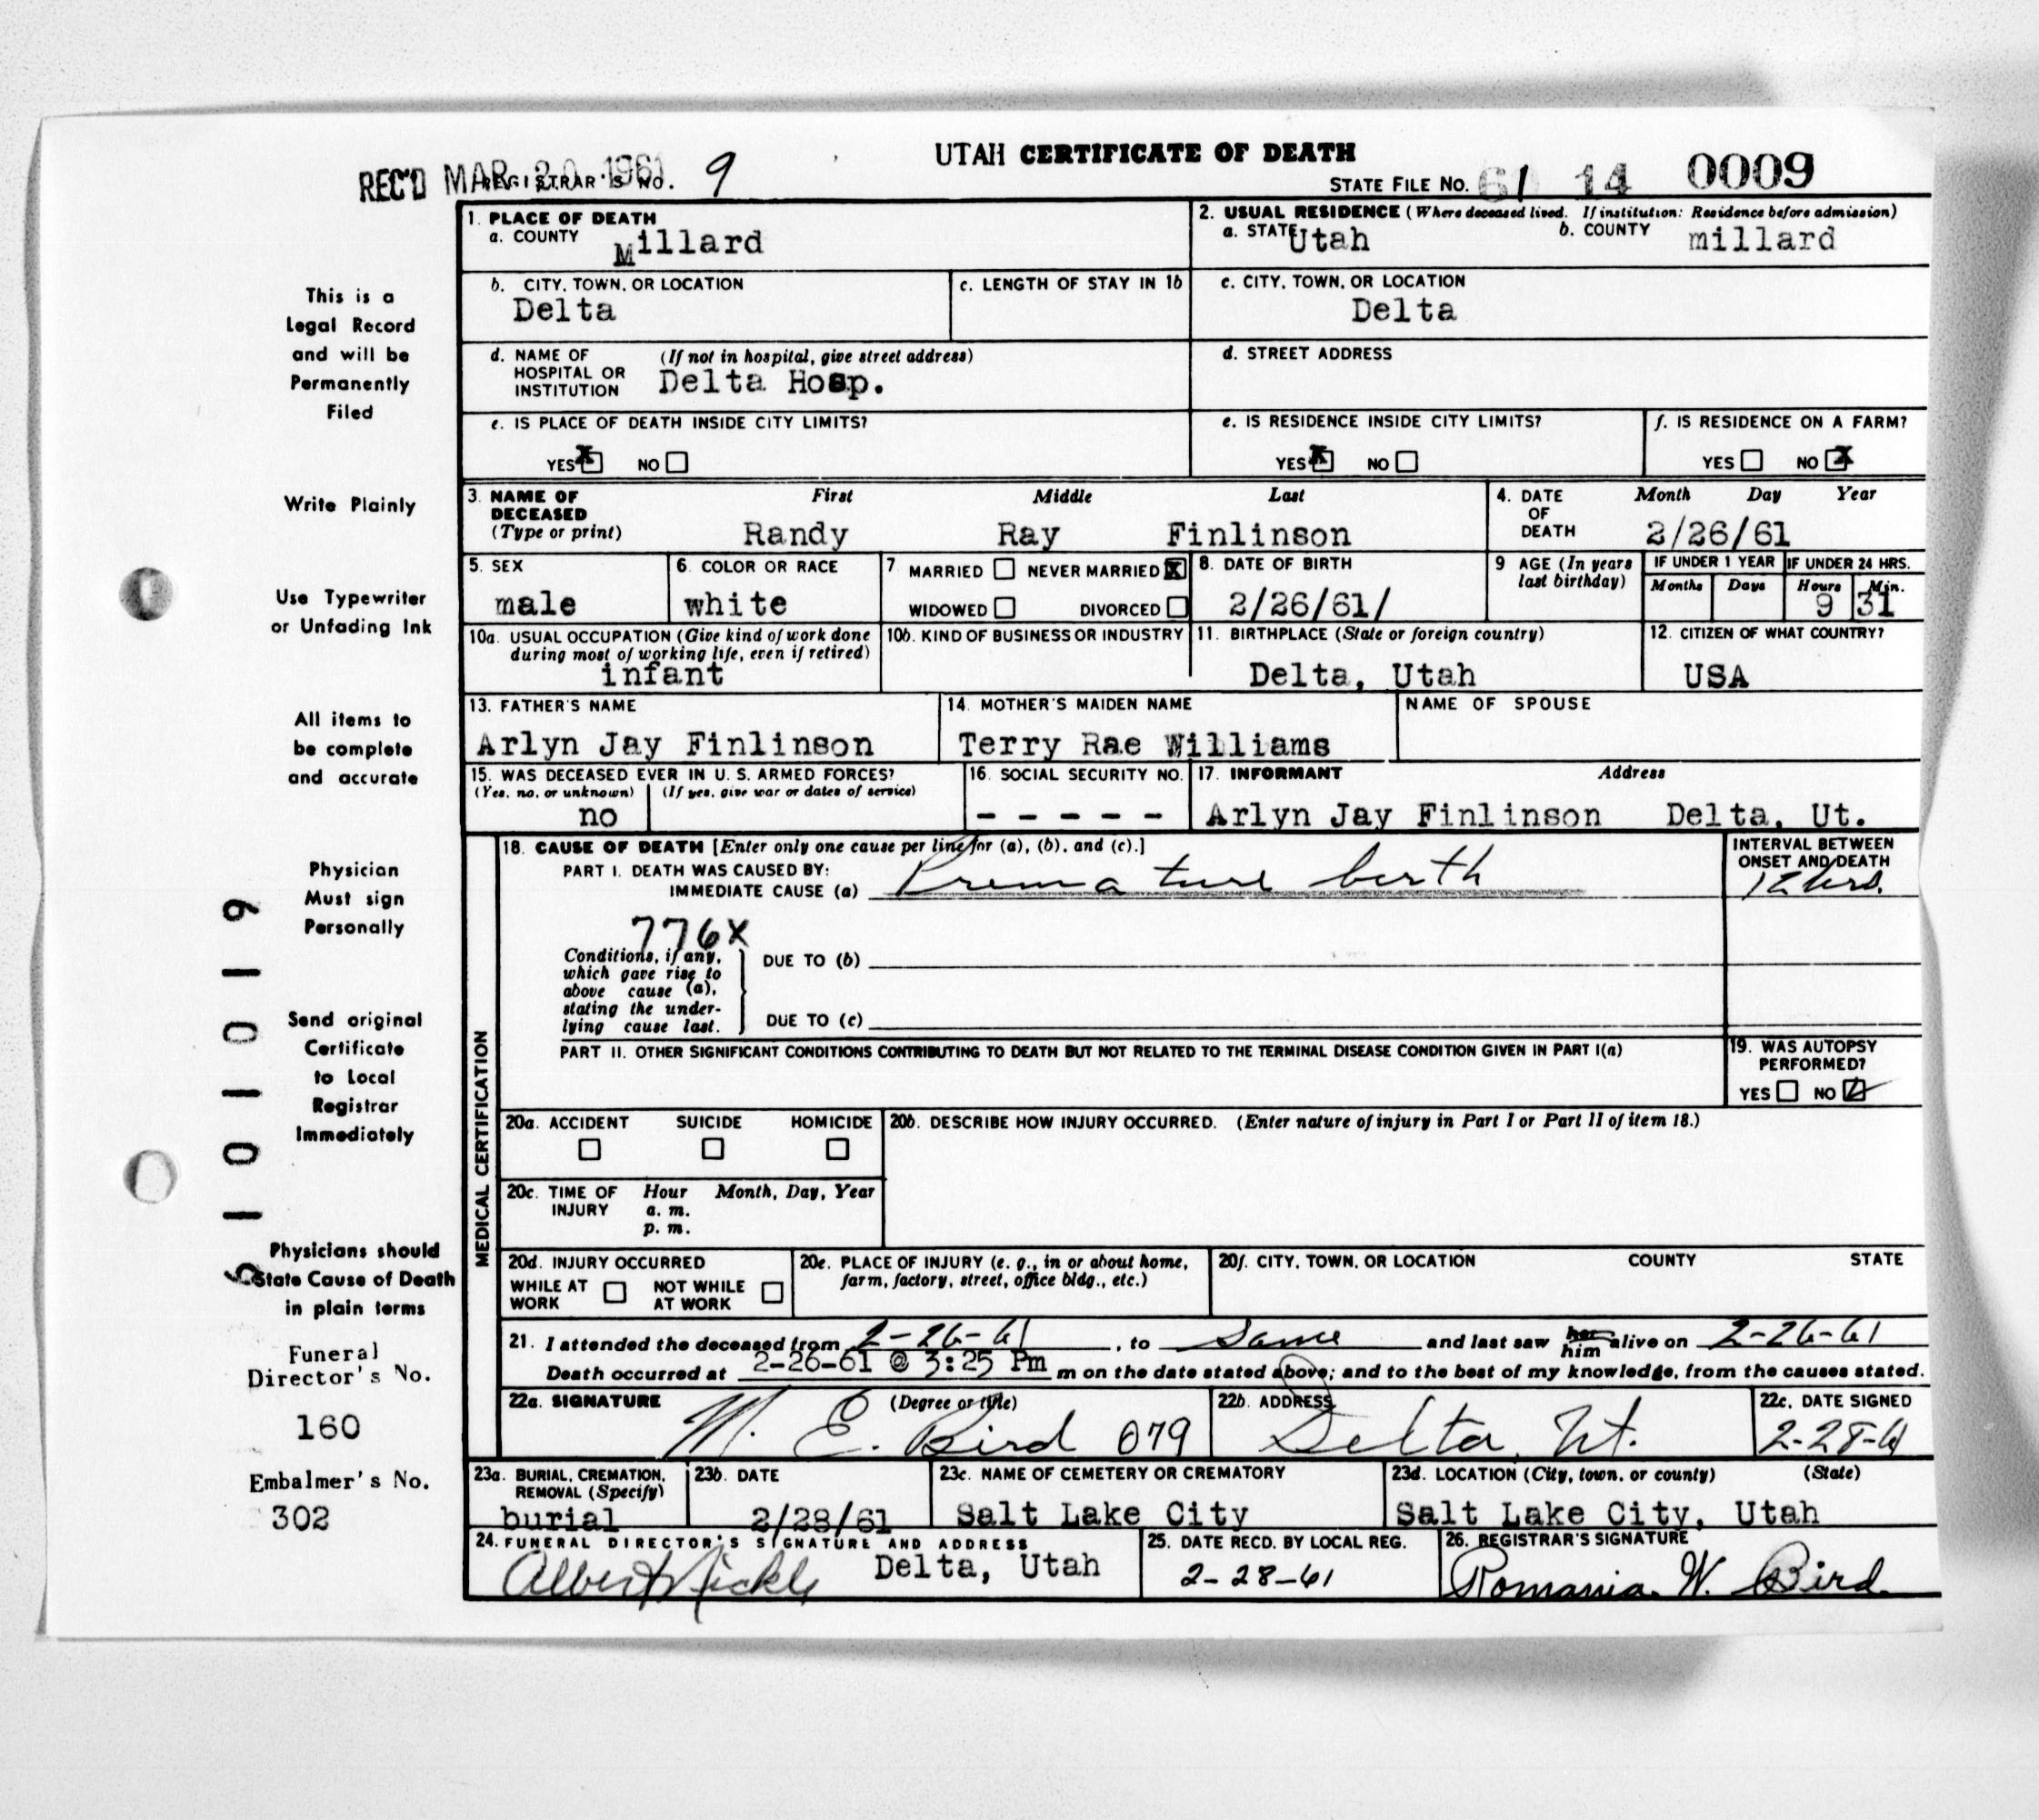 UTAH CERTIFICATE OF DEATH
REC'D MAR 20 1961
REGISTRAR'S NO. 9
STATE FILE NO. 61 14 0009
1. PLACE OF DEATH
a. COUNTY Millard
2. USUAL RESIDENCE (Where deceased lived. If institution: Residence before admission)
a. STATE Utah b. COUNTY millard
b. CITY, TOWN, OR LOCATION
Delta
c. LENGTH OF STAY IN 1b
c. CITY, TOWN, OR LOCATION
Delta
d. NAME OF HOSPITAL OR INSTITUTION (If not in hospital, give street address)
Delta Hosp.
d. STREET ADDRESS
e. IS PLACE OF DEATH INSIDE CITY LIMITS?
YES X NO
e. IS RESIDENCE INSIDE CITY LIMITS?
YES X NO
f. IS RESIDENCE ON A FARM?
YES NO X
3. NAME OF DECEASED (Type or print) First Middle Last
Randy Ray Finlinson
4. DATE OF DEATH Month Day Year
2/26/61
5. SEX
male
6. COLOR OR RACE
white
7. MARRIED NEVER MARRIED X
WIDOWED DIVORCED
8. DATE OF BIRTH
2/26/61/
9 AGE (In years last birthday)
IF UNDER 1 YEAR IF UNDER 24 HRS.
Months Days Hours Min.
9 31
10a. USUAL OCCUPATION (Give kind of work done during most of working life, even if retired)
infant
10b. KIND OF BUSINESS OR INDUSTRY
11. BIRTHPLACE (State or foreign country)
Delta, Utah
12. CITIZEN OF WHAT COUNTRY?
USA
13. FATHER'S NAME
Arlyn Jay Finlinson
14. MOTHER'S MAIDEN NAME
Terry Rae Williams
NAME OF SPOUSE
15. WAS DECEASED EVER IN U. S. ARMED FORCES?
(Yes, no, or unknown) (If yes, give war or dates of service)
no
16. SOCIAL SECURITY NO.
- - - - -
17. INFORMANT Address
Arlyn Jay Finlinson Delta, Ut.
MEDICAL CERTIFICATION
18. CAUSE OF DEATH [Enter only one cause per line for (a), (b), and (c).]
PART I. DEATH WAS CAUSED BY:
IMMEDIATE CAUSE (a) Premature birth
INTERVAL BETWEEN ONSET AND DEATH
12 hrs.
776X
Conditions, if any, which gave rise to above cause (a), stating the underlying cause last.
DUE TO (b)
DUE TO (c)
PART II. OTHER SIGNIFICANT CONDITIONS CONTRIBUTING TO DEATH BUT NOT RELATED TO THE TERMINAL DISEASE CONDITION GIVEN IN PART I(a)
19. WAS AUTOPSY PERFORMED?
YES NO
20a. ACCIDENT SUICIDE HOMICIDE
20b. DESCRIBE HOW INJURY OCCURRED. (Enter nature of injury in Part I or Part II of item 18.)
20c. TIME OF INJURY Hour Month, Day, Year
a. m.
p. m.
20d. INJURY OCCURRED
WHILE AT WORK NOT WHILE AT WORK
20e. PLACE OF INJURY (e. g., in or about home, farm, factory, street, office bldg., etc.)
20f. CITY, TOWN, OR LOCATION COUNTY STATE
21. I attended the deceased from 2-26-61, to Same and last saw her him alive on 2-26-61
Death occurred at 2-26-61 @ 3:25 Pm m on the date stated above; and to the best of my knowledge, from the causes stated.
22a. SIGNATURE (Degree or title)
M. E. Bird 079
22b. ADDRESS
Delta, Ut.
22c. DATE SIGNED
2-28-61
23a. BURIAL, CREMATION, REMOVAL (Specify)
burial
23b. DATE
2/28/61
23c. NAME OF CEMETERY OR CREMATORY
Salt Lake City
23d. LOCATION (City, town, or county) (State)
Salt Lake City, Utah
24. FUNERAL DIRECTOR'S SIGNATURE AND ADDRESS
Albert Nickle Delta, Utah
25. DATE RECD. BY LOCAL REG.
2-28-61
26. REGISTRAR'S SIGNATURE
Romania W. Bird
This is a
Legal Record
and will be
Permanently
Filed
Write Plainly
Use Typewriter
or Unfading Ink
All items to
be complete
and accurate
Physician
Must sign
Personally
Send original
Certificate
to Local
Registrar
Immediately
Physicians should
State Cause of Death
in plain terms
Funeral
Director's No.
160
Embalmer's No.
302